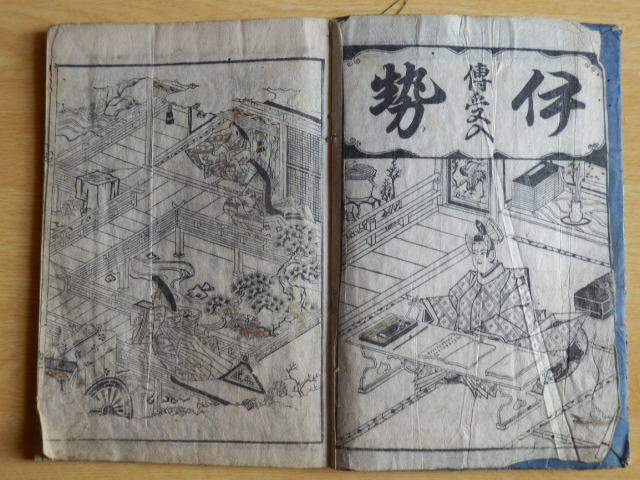 伊
傳受入
勢